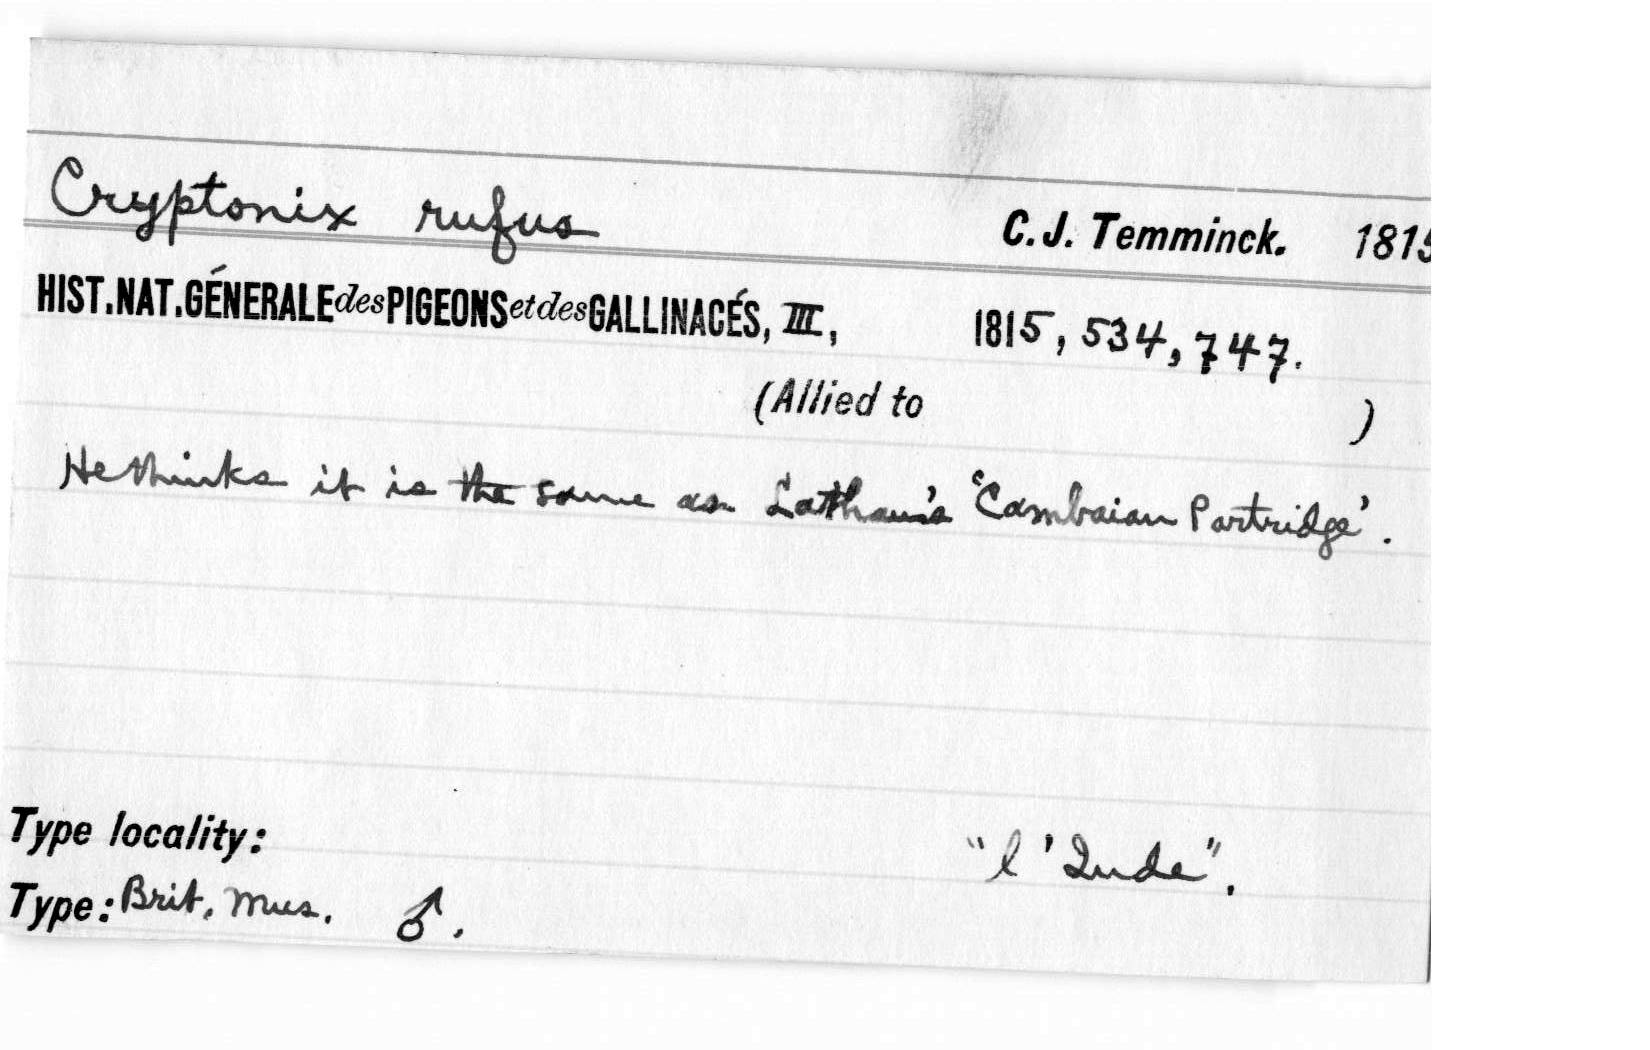 Cryptonix rufus C. J. Temminck. 1815
HIST. NAT. GÉNERALE des PIGEONS et des GALLINACÉS, III, 1815, 534, 747.
(Allied to )
He thinks it is the same as Latham's 'Cambaian Partridge'.
Type locality: "l'Inde".
Type: Brit. Mus. ♂.